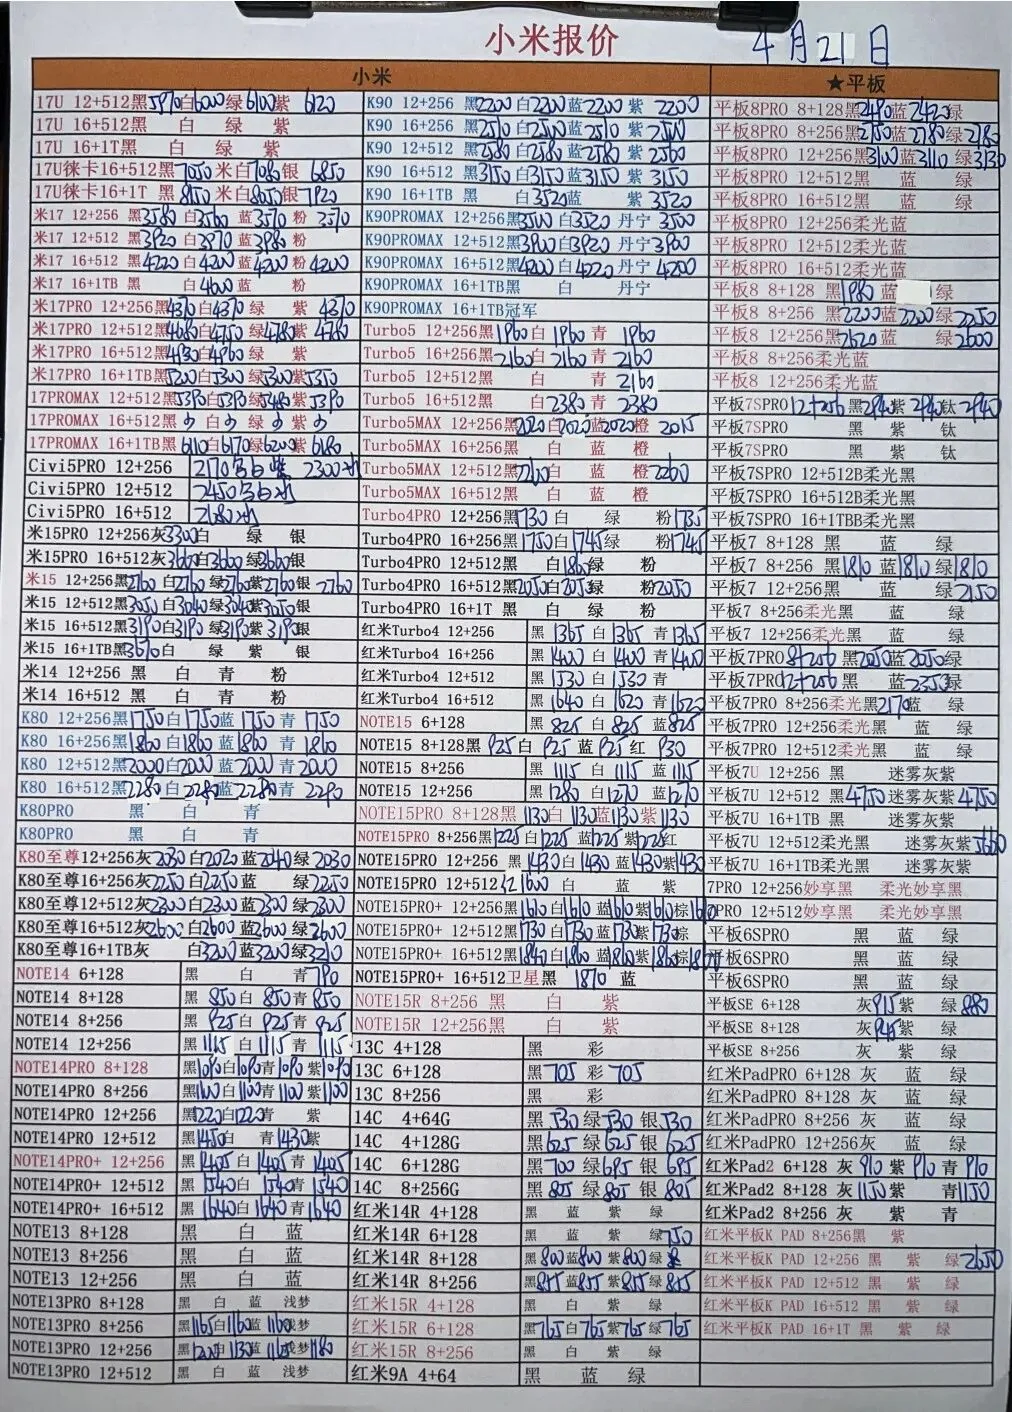 小米报价
4月21日
小米
17U 12+512黑5970白6000绿6100紫 6120
17U 16+512黑 白 绿 紫
17U 16+1T黑 白 绿 紫
17U徕卡16+512黑7050米白7080银 6850
17U徕卡16+1T 黑8150米白8050银7920
米17 12+256 黑3580白3560蓝3570粉 3570
米17 12+512 黑3920白3970蓝3980粉
米17 16+512 黑4220白4200蓝4200粉4200
米17 16+1TB 黑 白4600蓝 粉
米17PRO 12+256黑4370白4370绿 紫 4370
米17PRO 12+512黑4680白4750绿4780紫 4760
米17PRO 16+512黑4930白4960绿 紫
米17PRO 16+1TB黑5200白5300绿5300紫5350
17PROMAX 12+512黑5390白5390绿5480紫5390
17PROMAX 16+512黑 白 绿 紫
17PROMAX 16+1TB黑6110白6170绿6200紫6180
Civi5PRO 12+256 2170 白紫 2300冰
Civi5PRO 12+512 2450 白冰
Civi5PRO 16+512 2680冰
米15PRO 12+256灰3300白 绿 银
米15PRO 16+512灰3660白3600绿3660银
米15 12+256黑2760白2760绿2760紫2760银 2760
米15 12+512黑3050白3040绿3040紫3050银
米15 16+512黑3190白3190绿3190紫3190银
米15 16+1TB黑3670白 绿 紫 银
米14 12+256 黑 白 青 粉
米14 16+512 黑 白 青 粉
K80 12+256黑1750白1750蓝 1750青 1750
K80 16+256黑1860白1860蓝 1860青 1860
K80 12+512黑2000白2000蓝 2000青 2000
K80 16+512黑2280白2280蓝2280青 2290
K80PRO 黑 白 青
K80PRO 黑 白 青
K80至尊12+256灰2030白2020蓝2040绿2030
K80至尊16+256灰2250白2250蓝 绿2250
K80至尊12+512灰2300白2300蓝2300绿2300
K80至尊16+512灰2600白2600蓝2600绿2600
K80至尊16+1TB灰 白3200蓝3200绿3210
NOTE14 6+128 黑 白 青790
NOTE14 8+128 黑 850白 850青850
NOTE14 8+256 黑 925白 925青 925
NOTE14 12+256 黑1115白 1115青 1115
NOTE14PRO 8+128 黑1090白1090青1090紫1090
NOTE14PRO 8+256 黑1100白1100青1100紫1100
NOTE14PRO 12+256 黑1220白1220青 紫
NOTE14PRO 12+512 黑1450白 青1430紫
NOTE14PRO+ 12+256 黑1405白1405青1405
NOTE14PRO+ 12+512 黑1540白1540青1540
NOTE14PRO+ 16+512 黑1640白1640青1640
NOTE13 8+128 黑 白 蓝
NOTE13 8+256 黑 白 蓝
NOTE13 12+256 黑 白 蓝
NOTE13PRO 8+128 黑 白 蓝 浅梦
NOTE13PRO 8+256 黑1165白1160蓝1160浅梦
NOTE13PRO 12+256 黑1200白1130蓝1165浅梦1180
NOTE13PRO 12+512 黑 白 蓝 浅梦
K90 12+256 黑2200白2200蓝2200紫 2200
K90 16+256 黑2510白2500蓝2510紫2500
K90 12+512 黑2580白2580蓝2580紫2560
K90 16+512 黑3150白3150蓝3150紫 3150
K90 16+1TB 黑 白3520蓝 紫3520
K90PROMAX 12+256黑3500白3520丹宁3500
K90PROMAX 12+512黑3900白3920丹宁3900
K90PROMAX 16+512黑4200白4220丹宁4200
K90PROMAX 16+1TB黑 白 丹宁
K90PROMAX 16+1TB冠军
Turbo5 12+256黑1960白 1960青 1960
Turbo5 16+256黑2160白 2160青 2160
Turbo5 12+512黑 白 青2160
Turbo5 16+512黑 白2380青 2380
Turbo5MAX 12+256黑2020白2020蓝2020橙 2015
Turbo5MAX 16+256黑 白 蓝 橙
Turbo5MAX 12+512黑2260白 蓝 橙2260
Turbo5MAX 16+512黑 白 蓝 橙
Turbo4PRO 12+256黑1730白 绿 粉1735
Turbo4PRO 16+256黑1750白1745绿 粉1745
Turbo4PRO 12+512黑 白1860绿 粉
Turbo4PRO 16+512黑2050白2050绿 粉2050
Turbo4PRO 16+1T 黑 白 绿 粉
红米Turbo4 12+256 黑 1365白 1365青1365
红米Turbo4 16+256 黑 1400白 1400青1400
红米Turbo4 12+512 黑 1530白 1530青
红米Turbo4 16+512 黑 1640白 1620青1620
NOTE15 6+128 黑 825白 825蓝825
NOTE15 8+128黑 925白 925蓝 925红 930
NOTE15 8+256 黑 1115白 1115蓝1115
NOTE15 12+256 黑 1280白 1270蓝1270
NOTE15PRO 8+128黑1130白1130蓝1130紫1130
NOTE15PRO 8+256黑1225白1225蓝1225紫1225红
NOTE15PRO 12+256 黑1430白1430蓝1430紫1430
NOTE15PRO 12+512红1600白 蓝 紫
NOTE15PRO+ 12+256黑1610白1610蓝1610紫1610棕1610
NOTE15PRO+ 12+512黑1730白1730蓝1730紫1730棕
NOTE15PRO+ 16+512黑1840白1860蓝1860紫1860棕
NOTE15PRO+ 16+512卫星黑 1870蓝
NOTE15R 8+256 黑 白 紫
NOTE15R 12+256黑 白 紫
13C 4+128 黑 彩
13C 6+128 黑705 彩705
13C 8+256 黑 彩
14C 4+64G 黑530绿530银530
14C 4+128G 黑625绿625银625
14C 6+128G 黑700绿695银 695
14C 8+256G 黑805绿805银 805
红米14R 4+128 黑 蓝 紫 绿
红米14R 6+128 黑 蓝 紫 绿750
红米14R 8+128 黑800蓝800紫800绿
红米14R 8+256 黑855蓝855紫855绿855
红米15R 4+128 黑 白 紫 绿
红米15R 6+128 黑765白765紫765绿765
红米15R 8+256 黑 白 紫 绿
红米9A 4+64 黑 蓝 绿
★平板
平板8PRO 8+128黑2490蓝2420绿
平板8PRO 8+256黑2750蓝2780绿2780
平板8PRO 12+256黑3100蓝3110绿3130
平板8PRO 12+512黑 蓝 绿
平板8PRO 16+512黑 蓝 绿
平板8PRO 12+256柔光蓝
平板8PRO 12+512柔光蓝
平板8PRO 16+512柔光蓝
平板8 8+128 黑1980蓝 绿
平板8 8+256 黑2200蓝2200绿2250
平板8 12+256 黑2620蓝 绿2600
平板8 8+256柔光蓝
平板8 12+256柔光蓝
平板7SPRO 12+256 黑2940紫 2940钛2940
平板7SPRO 黑 紫 钛
平板7SPRO 黑 紫 钛
平板7SPRO 12+512B柔光黑
平板7SPRO 16+512B柔光黑
平板7SPRO 16+1TBB柔光黑
平板7 8+128 黑 蓝 绿
平板7 8+256 黑1810蓝1810绿1810
平板7 12+256 黑 蓝 绿2150
平板7 8+256柔光黑 蓝 绿
平板7 12+256柔光黑 蓝 绿
平板7PRO 8+256 黑2050蓝2050绿
平板7PRO 12+256 黑 蓝2350绿
平板7PRO 8+256柔光黑2170蓝 绿
平板7PRO 12+256柔光黑 蓝 绿
平板7PRO 12+512柔光黑 蓝 绿
平板7U 12+256 黑 迷雾灰紫
平板7U 12+512 黑4750迷雾灰紫4750
平板7U 16+1TB 黑 迷雾灰紫
平板7U 12+512柔光黑 迷雾灰紫5660
平板7U 16+1TB柔光黑 迷雾灰紫
7PRO 12+256妙享黑 柔光妙享黑
PRO 12+512妙享黑 柔光妙享黑
平板6SPRO 黑 蓝 绿
平板6SPRO 黑 蓝 绿
平板6SPRO 黑 蓝 绿
平板SE 6+128 灰915紫 绿880
平板SE 8+128 灰945紫 绿
平板SE 8+256 灰 紫 绿
红米PadPRO 6+128 灰 蓝 绿
红米PadPRO 8+128灰 蓝 绿
红米PadPRO 8+256灰 蓝 绿
红米PadPRO 12+256灰 蓝 绿
红米Pad2 6+128 灰 910紫 910青 910
红米Pad2 8+128 灰1150紫 青1150
红米Pad2 8+256 灰 紫 青
红米平板K PAD 8+256黑 紫
红米平板K PAD 12+256 黑 紫 绿2650
红米平板K PAD 12+512 黑 紫 绿
红米平板K PAD 16+512 黑 紫 绿
红米平板K PAD 16+1T 黑 紫 绿